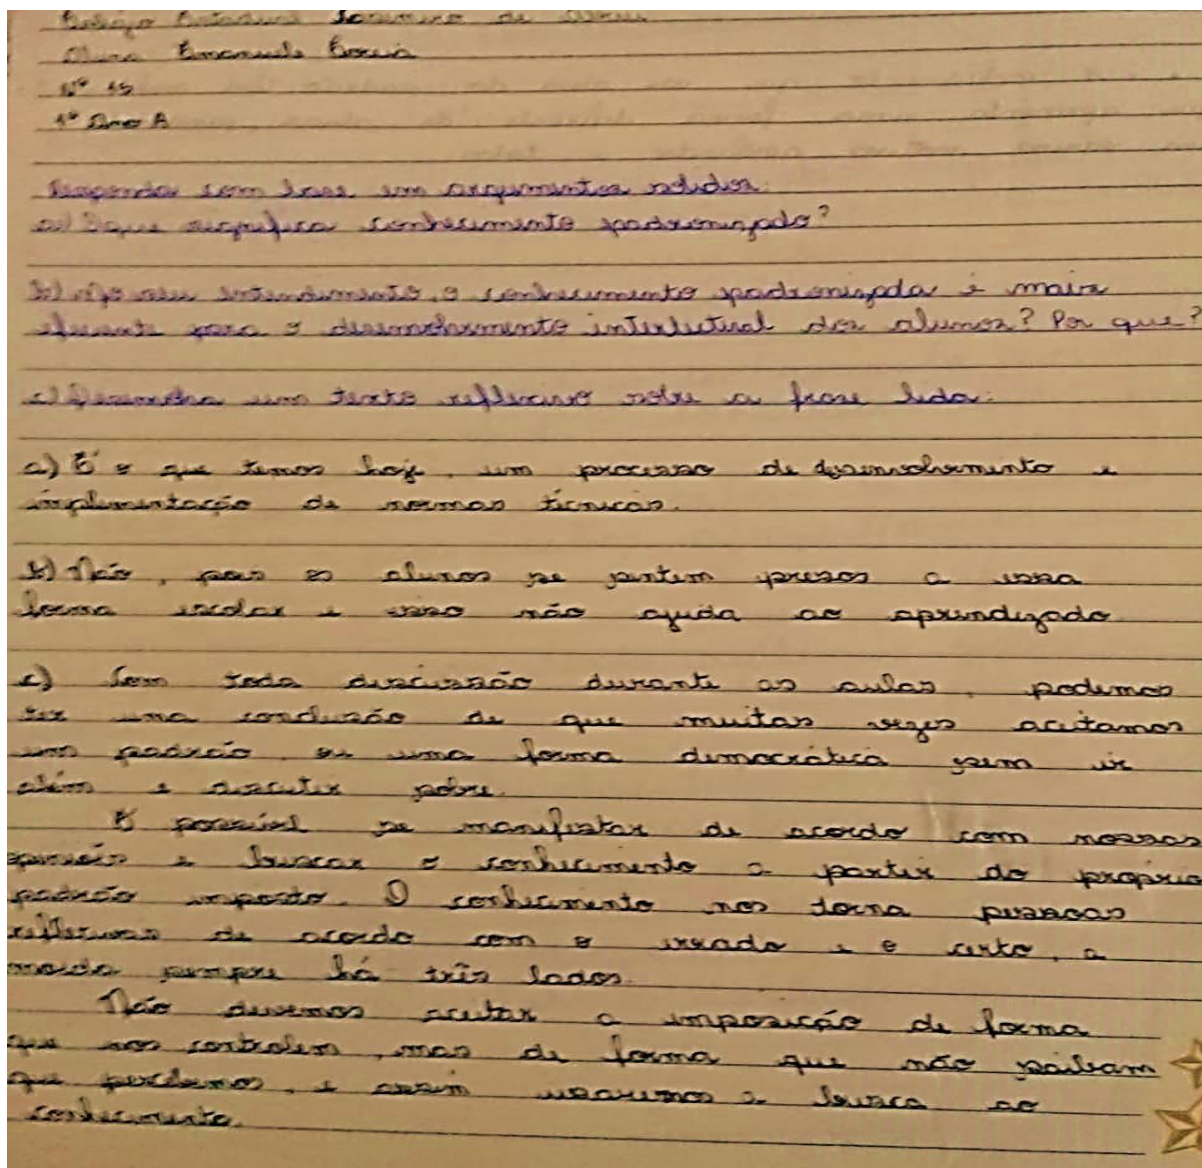 Colégio Estadual Casimiro de Abreu
Emanuele
Nº 15
1º Ano A
Responda com base em argumentos sólidos:
a) O que significa conhecimento padronizado?
b) No seu entendimento, o conhecimento padronizado é mais
eficiente para o desenvolvimento intelectual dos alunos? Por que?
c) Desenvolva um texto reflexivo sobre a frase lida:
a) É o que temos hoje, um processo de desenvolvimento e
implementação de normas técnicas.
b) Não, pois os alunos se sentem presos a essa
forma escolar e isso não ajuda ao aprendizado
c) Com toda discussão durante as aulas, podemos
ter uma conclusão de que muitas vezes aceitamos
um padrão, ou uma forma democrática sem ir
além e discutir sobre.
É possível se manifestar de acordo com nossas
opiniões e buscar o conhecimento a partir do próprio
padrão imposto. O conhecimento nos torna pessoas
reflexivas de acordo com o errado e o certo, a
moeda sempre há três lados.
Não devemos aceitar a imposição de forma
que nos controlem, mas de forma que não saibam
que perdemos, e assim usaremos a busca ao
conhecimento.